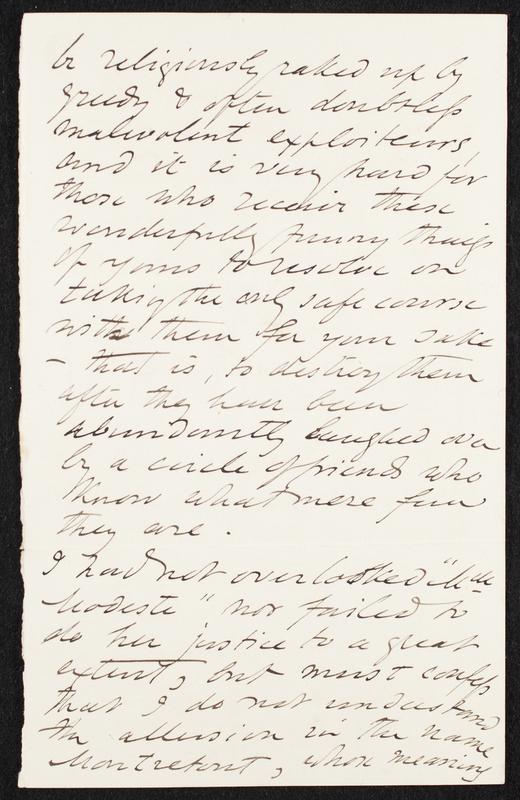 be religiously raked up by
greedy & often doubtless
malevolent exploiteurs,
and it is very hard for
those who receive these
wonderfully funny things
of yours to resolve on
taking the only safe course
with them for your sake
– that is, to destroy them
after they have been
abundantly laughed over
by a circle of friends who
know what mere fun
they are.
I had not overlooked "Mlle
Modeste" nor failed to
do her justice to a great
extent, but must confess
that I do not understand
the allusion in the name
Montretout, whose meaning